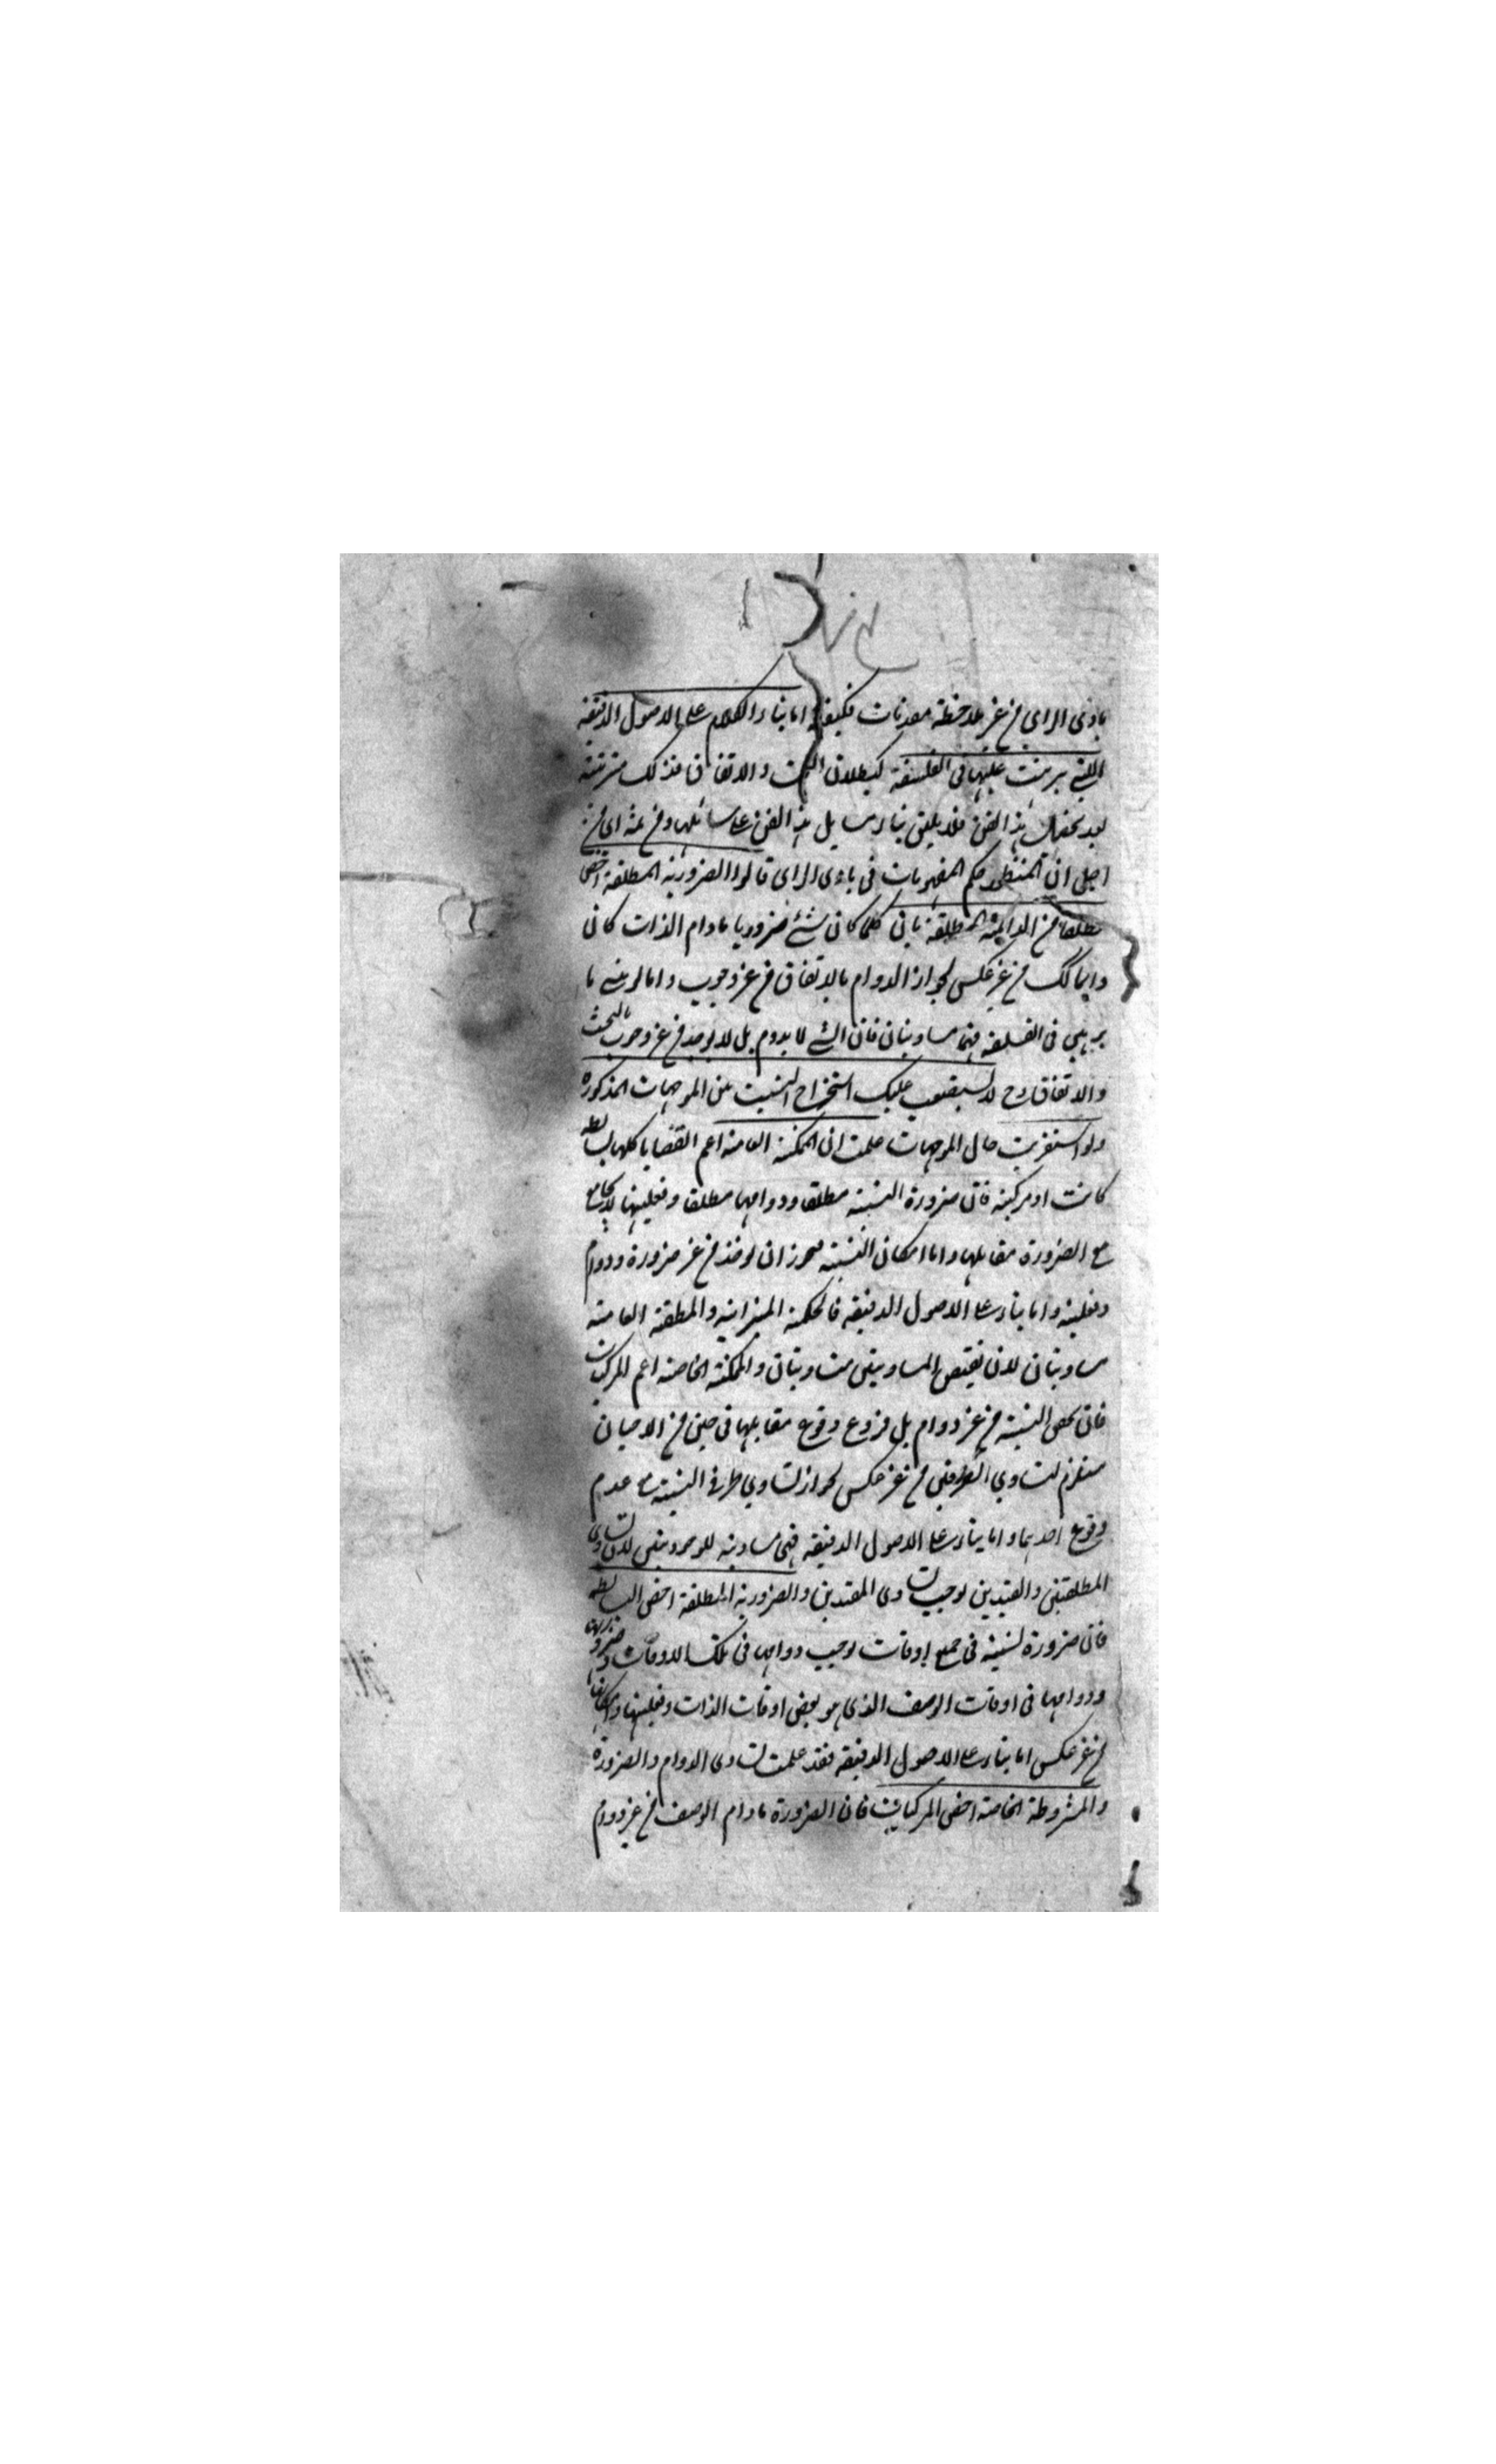 بادى الراى من غير ملاحظة مصدقات كيفية اما بناء الكلام على الاصول الدقيقة
اللتي برهنت عليها في الفلسفة كبطلان البخت والاتفاق فذلك مرتبته
بعد تحصيل هذا الفن فلا يليق بناء مسايل هذا الفن على مسائلها ومن ثمه اى من
اجل ان المنظور حكم المفهومات في بادى الراى قالوا الضرورية المطلقة اخص
مطلقا من الدايمة المطلقة فانى كلما كان شئ ضروريا مادام الذات كان
دايما كك من غير عكس لجواز الدوام بالاتفاق من غير وجوب واما لو بنى ما
برهن في الفلسفة فهما مساويتان فان الشئ لا يدوم بل لا يوجد من غير وجوب بالبخت
والاتفاق وح لا يستصعب عليك استخراج النسبت بين الموجهات المذكورة
ولو استقريت حال الموجهات علمت ان الممكنة العامة اعم القضايا كلها بسايطه
كانت او مركبة فان ضرورة النسبة مطلقا ودوامها مطلقا وفعليتها لا يجامع
مع الضرورة مقابلها واما امكان النسبة فيجوز ان يوخذ من غير ضرورة ودوام
وفعلية واما بناء على الاصول الدقيقة فالممكنة الميزانية والمطلقة العامة
مساويتان لان نقيض المساويين متساويتان والممكنة الخاصة اعم المركبات
فان تحقق النسبة من غير دوام بل فروع وقوع مقابلها في حين من الاحيان
مستلزم لتساوي الطرفين من غير عكس لجواز تساوي طرفى النسبة مع عدم
وقوع احديهما واما بناء على الاصول الدقيقة فهى مساوية للوجوديتين لان تساوى
المطلقتين والقيدين يوجب تساوى المقيدين والضرورية المطلقة اخص البسايطه
فان ضرورة نسبته في جميع اوقات يوجب دوامها في تلك الاوقات وضرورتها
ودوامها في اوقات الوصف الذي هو بعض اوقات الذات وفعليتها وامكانها
من غير عكس اما بناء على الاصول الدقيقة فقد علمت تساوى الدوام والضرورة
والمشروطة الخاصة اخص المركبات فان الضرورة مادام الوصف من غير دوام